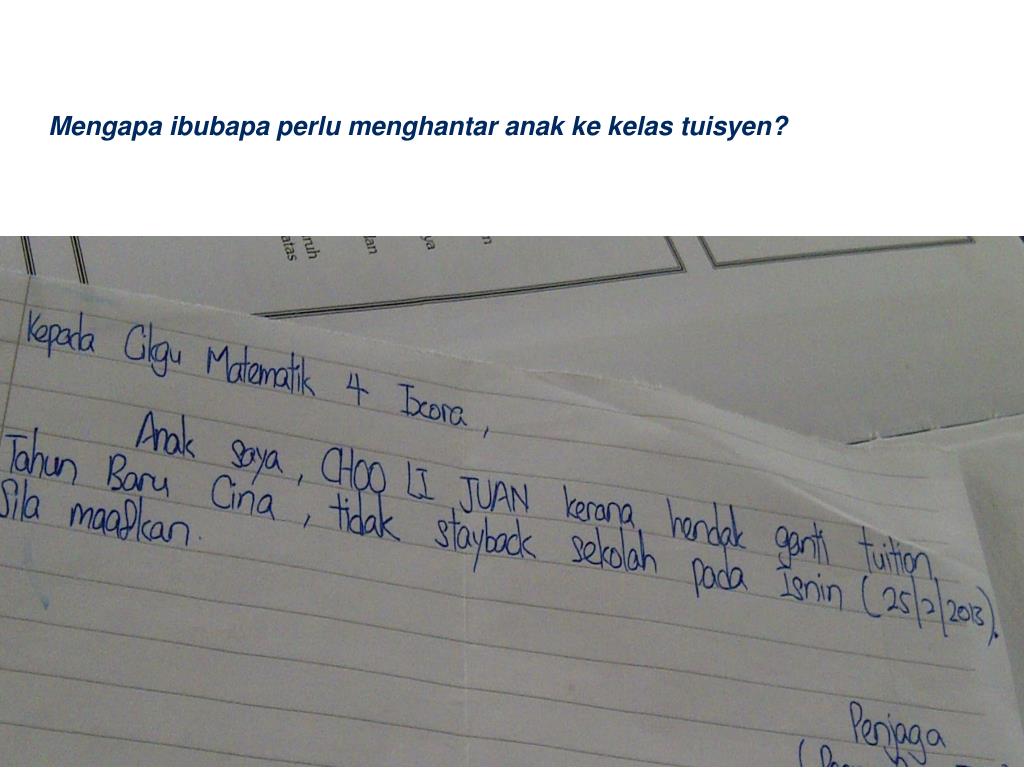 Mengapa ibubapa perlu menghantar anak ke kelas tuisyen?
atas
ruh
lan
ya
n
Kepada Cikgu Matematik 4 Ixora,
Anak saya, CHOO LI JUAN kerana hendak ganti tuition
Tahun Baru Cina, tidak stayback sekolah pada Isnin (25/2/2013).
Sila maafkan.
Penjaga